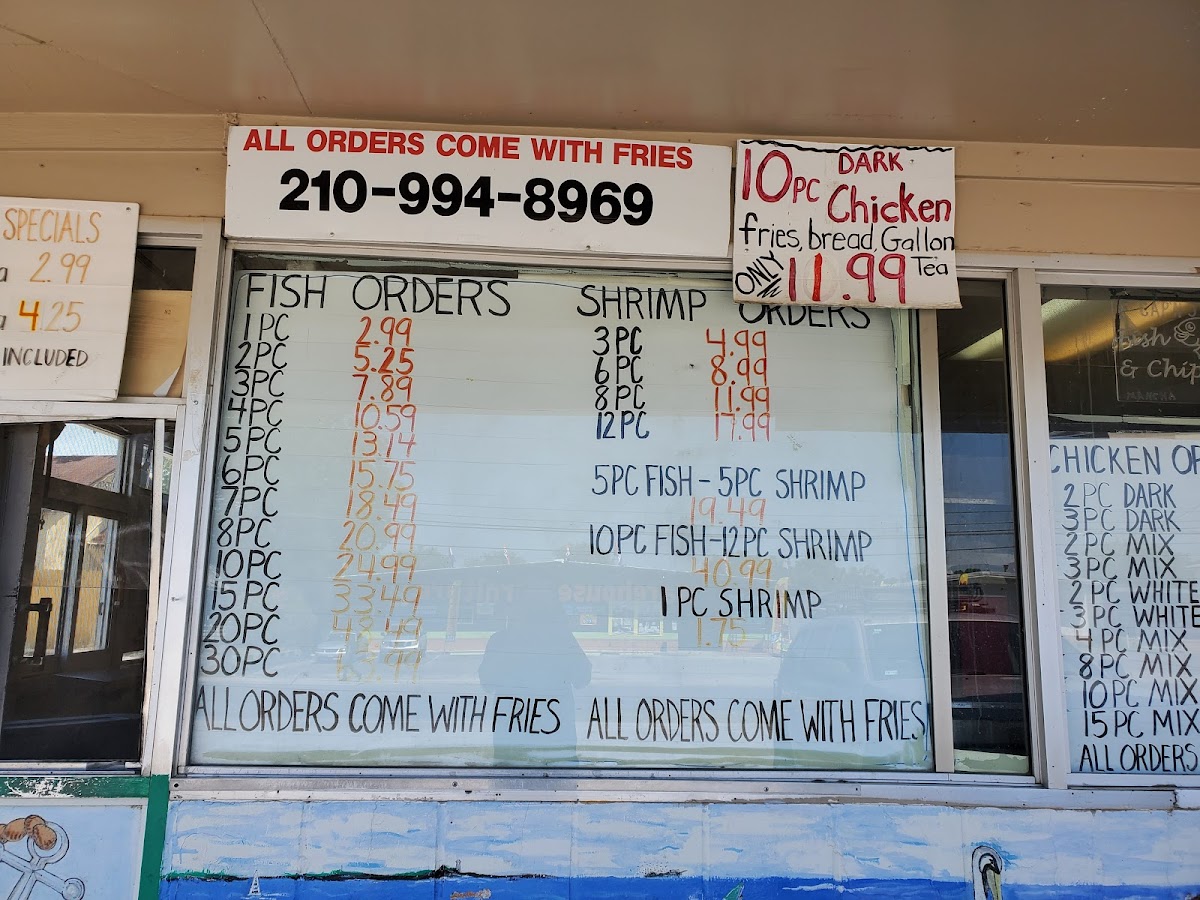 SPECIALS
2.99
4.25
INCLUDED
ALL ORDERS COME WITH FRIES
210-994-8969
10PC DARK Chicken
fries, bread, Gallon Tea
ONLY 11.99
FISH ORDERS
1PC 2.99
2PC 5.25
3PC 7.89
4PC 10.59
5PC 13.14
6PC 15.75
7PC 18.49
8PC 20.99
10PC 24.99
15PC 33.49
20PC 43.49
30PC
ALL ORDERS COME WITH FRIES
SHRIMP ORDERS
3PC 4.99
6PC 8.99
8PC 11.99
12PC 17.99
5PC FISH - 5PC SHRIMP
19.49
10PC FISH-12PC SHRIMP
40.99
1PC SHRIMP
1.75
ALL ORDERS COME WITH FRIES
& Chip
CHICKEN OR
2PC DARK
3PC DARK
2PC MIX
3PC MIX
2PC WHITE
3PC WHITE
4PC MIX
8PC MIX
10PC MIX
15PC MIX
ALL ORDERS